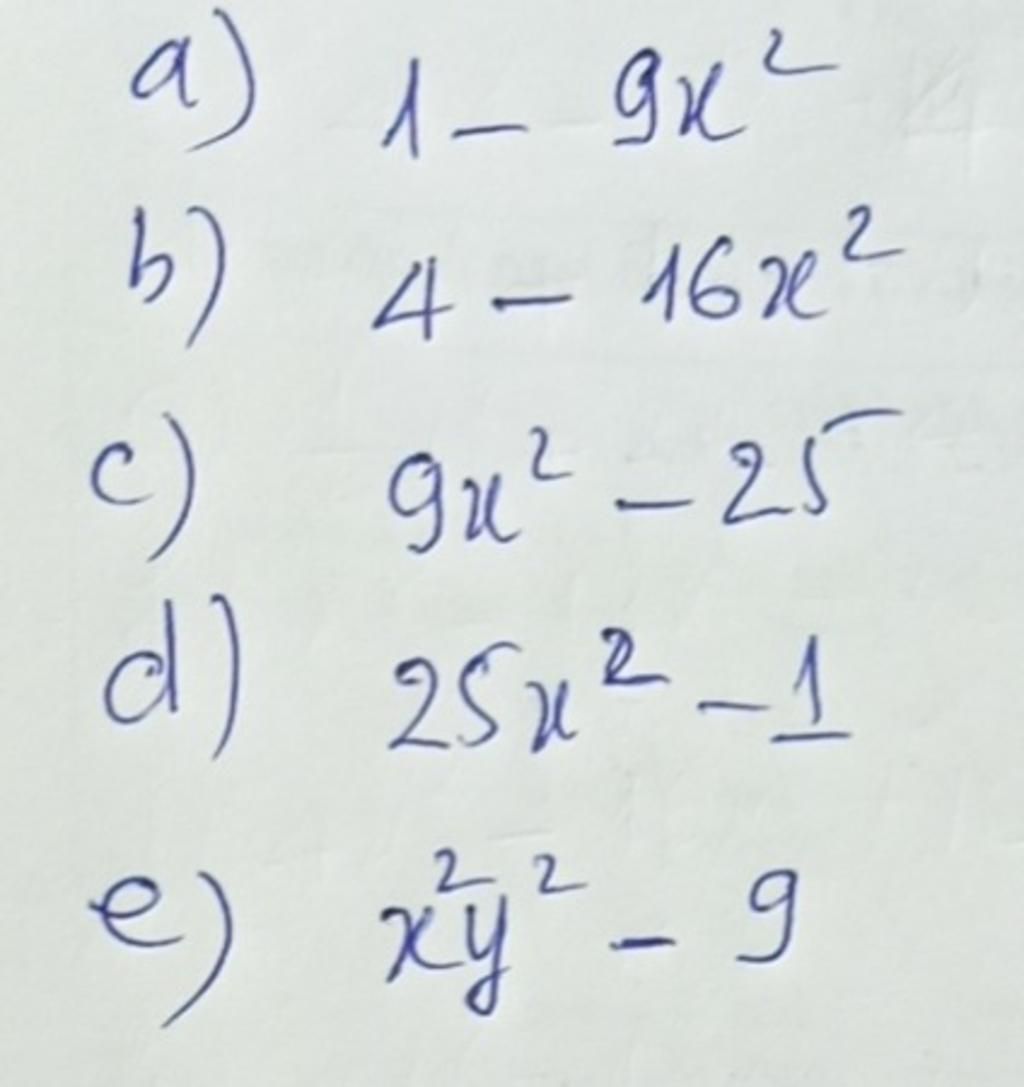 a) 1 - 9x²
b) 4 - 16x²
c) 9x² - 25
d) 25x² - 1
e) x²y² - 9